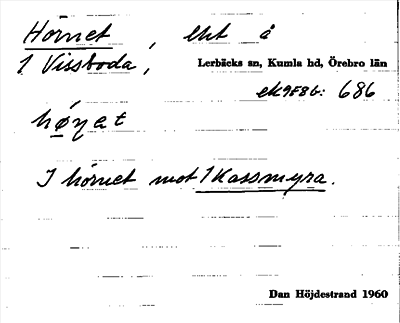 Hörnet, lht å
1 Vissboda, Lerbäcks sn, Kumla hd, Örebro län
ek9F8b: 686
hø̄ṇat
I hörnet mot 1 Kassmyra.
Dan Höjdestrand 1960